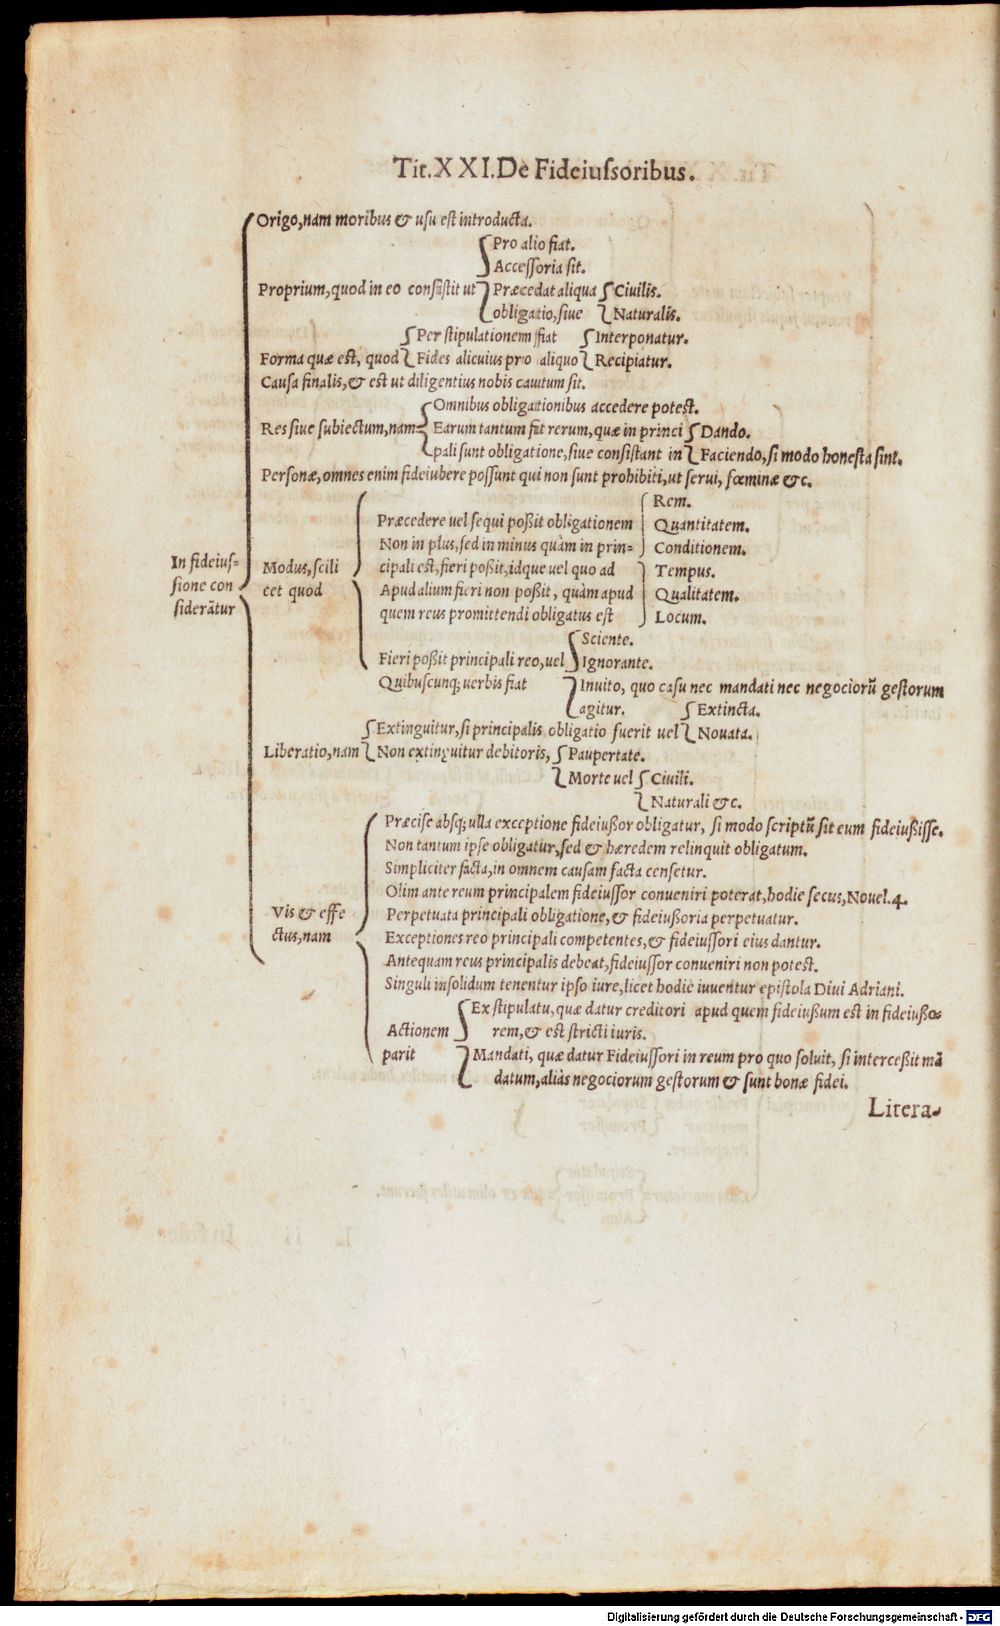 Tit. XXI. De Fideiussoribus.
Origo, nam moribus & usu est introducta.
Pro alio fiat.
Accessoria sit.
Proprium, quod in eo consistit ut Præcedat aliqua Civilis.
obligatio, siue Naturalis.
Per stipulationem fiat Interponatur.
Forma quæ est, quod Fides alicuius pro aliquo Recipiatur.
Causa finalis, & est ut diligentius nobis cautum sit.
Omnibus obligationibus accedere potest.
Res siue subiectum, nam Earum tantum fit rerum, quæ in princi Dando.
pali sunt obligatione, siue consistant in Faciendo, si modo honesta sint.
Personæ, omnes enim fideiubere possunt qui non sunt prohibiti, ut serui, fœminæ &c.
Rem.
Præcedere uel sequi poßit obligationem Quantitatem.
Non in plus, sed in minus quàm in prin= Conditionem.
In fideius= Modus, scili cipali est, fieri poßit, idque uel quo ad Tempus.
sione con cet quod Apud alium fieri non poßit, quàm apud Qualitatem.
siderātur quem reus promittendi obligatus est Locum.
Sciente.
Fieri poßit principali reo, uel Ignorante.
Quibuscunq; uerbis fiat Inuito, quo casu nec mandati nec negociorū gestorum
agitur. Extincta.
Extinguitur, si principalis obligatio fuerit uel Nouata.
Liberatio, nam Non extinguitur debitoris, Paupertate.
Morte uel Ciuili.
Naturali &c.
Præcise absq; ulla exceptione fideiußor obligatur, si modo scriptū sit eum fideiußisse.
Non tantum ipse obligatur, sed & hæredem relinquit obligatum.
Simpliciter facta, in omnem causam facta censetur.
Olim ante reum principalem fideiussor conueniri poterat, hodie secus, Nouel. 4.
Vis & effe Perpetuata principali obligatione, & fideiußoria perpetuatur.
ctus, nam Exceptiones reo principali competentes, & fideiussori eius dantur.
Antequam reus principalis debeat, fideiussor conueniri non potest.
Singuli insolidum tenentur ipso iure, licet hodie iuuentur epistola Diui Adriani.
Ex stipulatu, quæ datur creditori apud quem fideiußum est in fideiußo=
Actionem rem, & est stricti iuris.
parit Mandati, quæ datur Fideiussori in reum pro quo soluit, si interceßit mā
datum, aliàs negociorum gestorum & sunt bonæ fidei.
Litera-
Digitalisierung gefördert durch die Deutsche Forschungsgemeinschaft - DFG